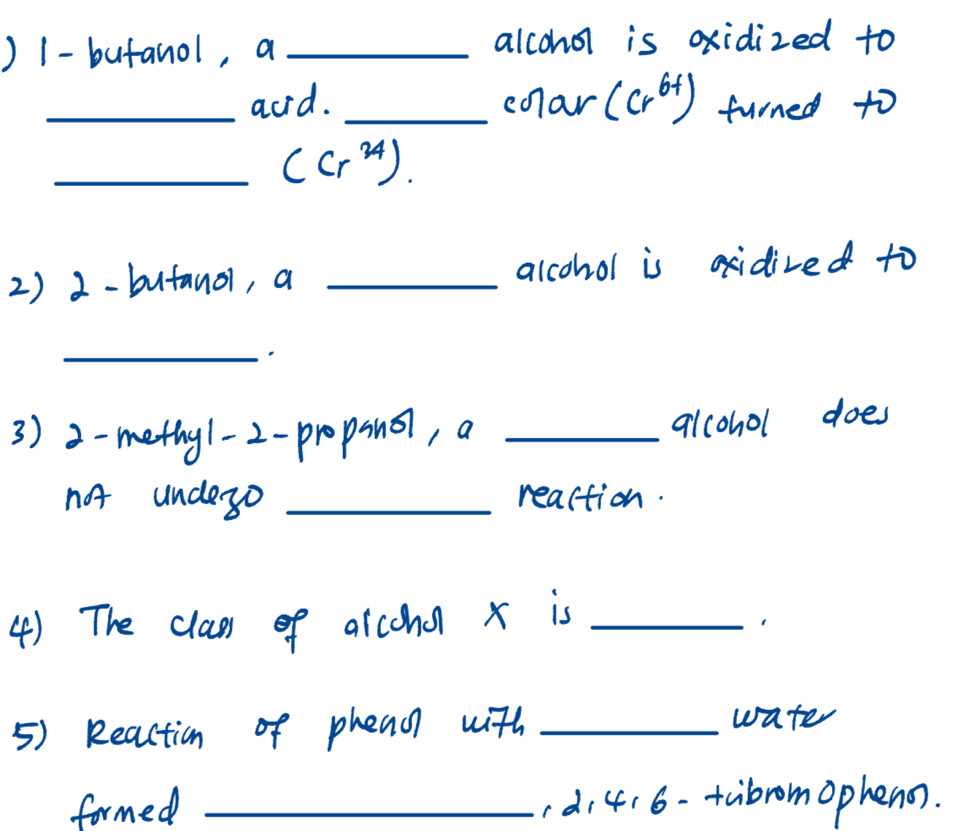 ) 1-butanol, a ________ alcohol is oxidized to
________ acid. ________ colar (Cr⁶⁺) turned to
________ (Cr³⁺).
2) 2-butanol, a ________ alcohol is oxidized to
________.
3) 2-methyl-2-propanol, a ________ alcohol does
not undergo ________ reaction.
4) The class of alcohol X is ________.
5) Reaction of phenol with ________ water
formed ________, 2,4,6-tribromophenol.